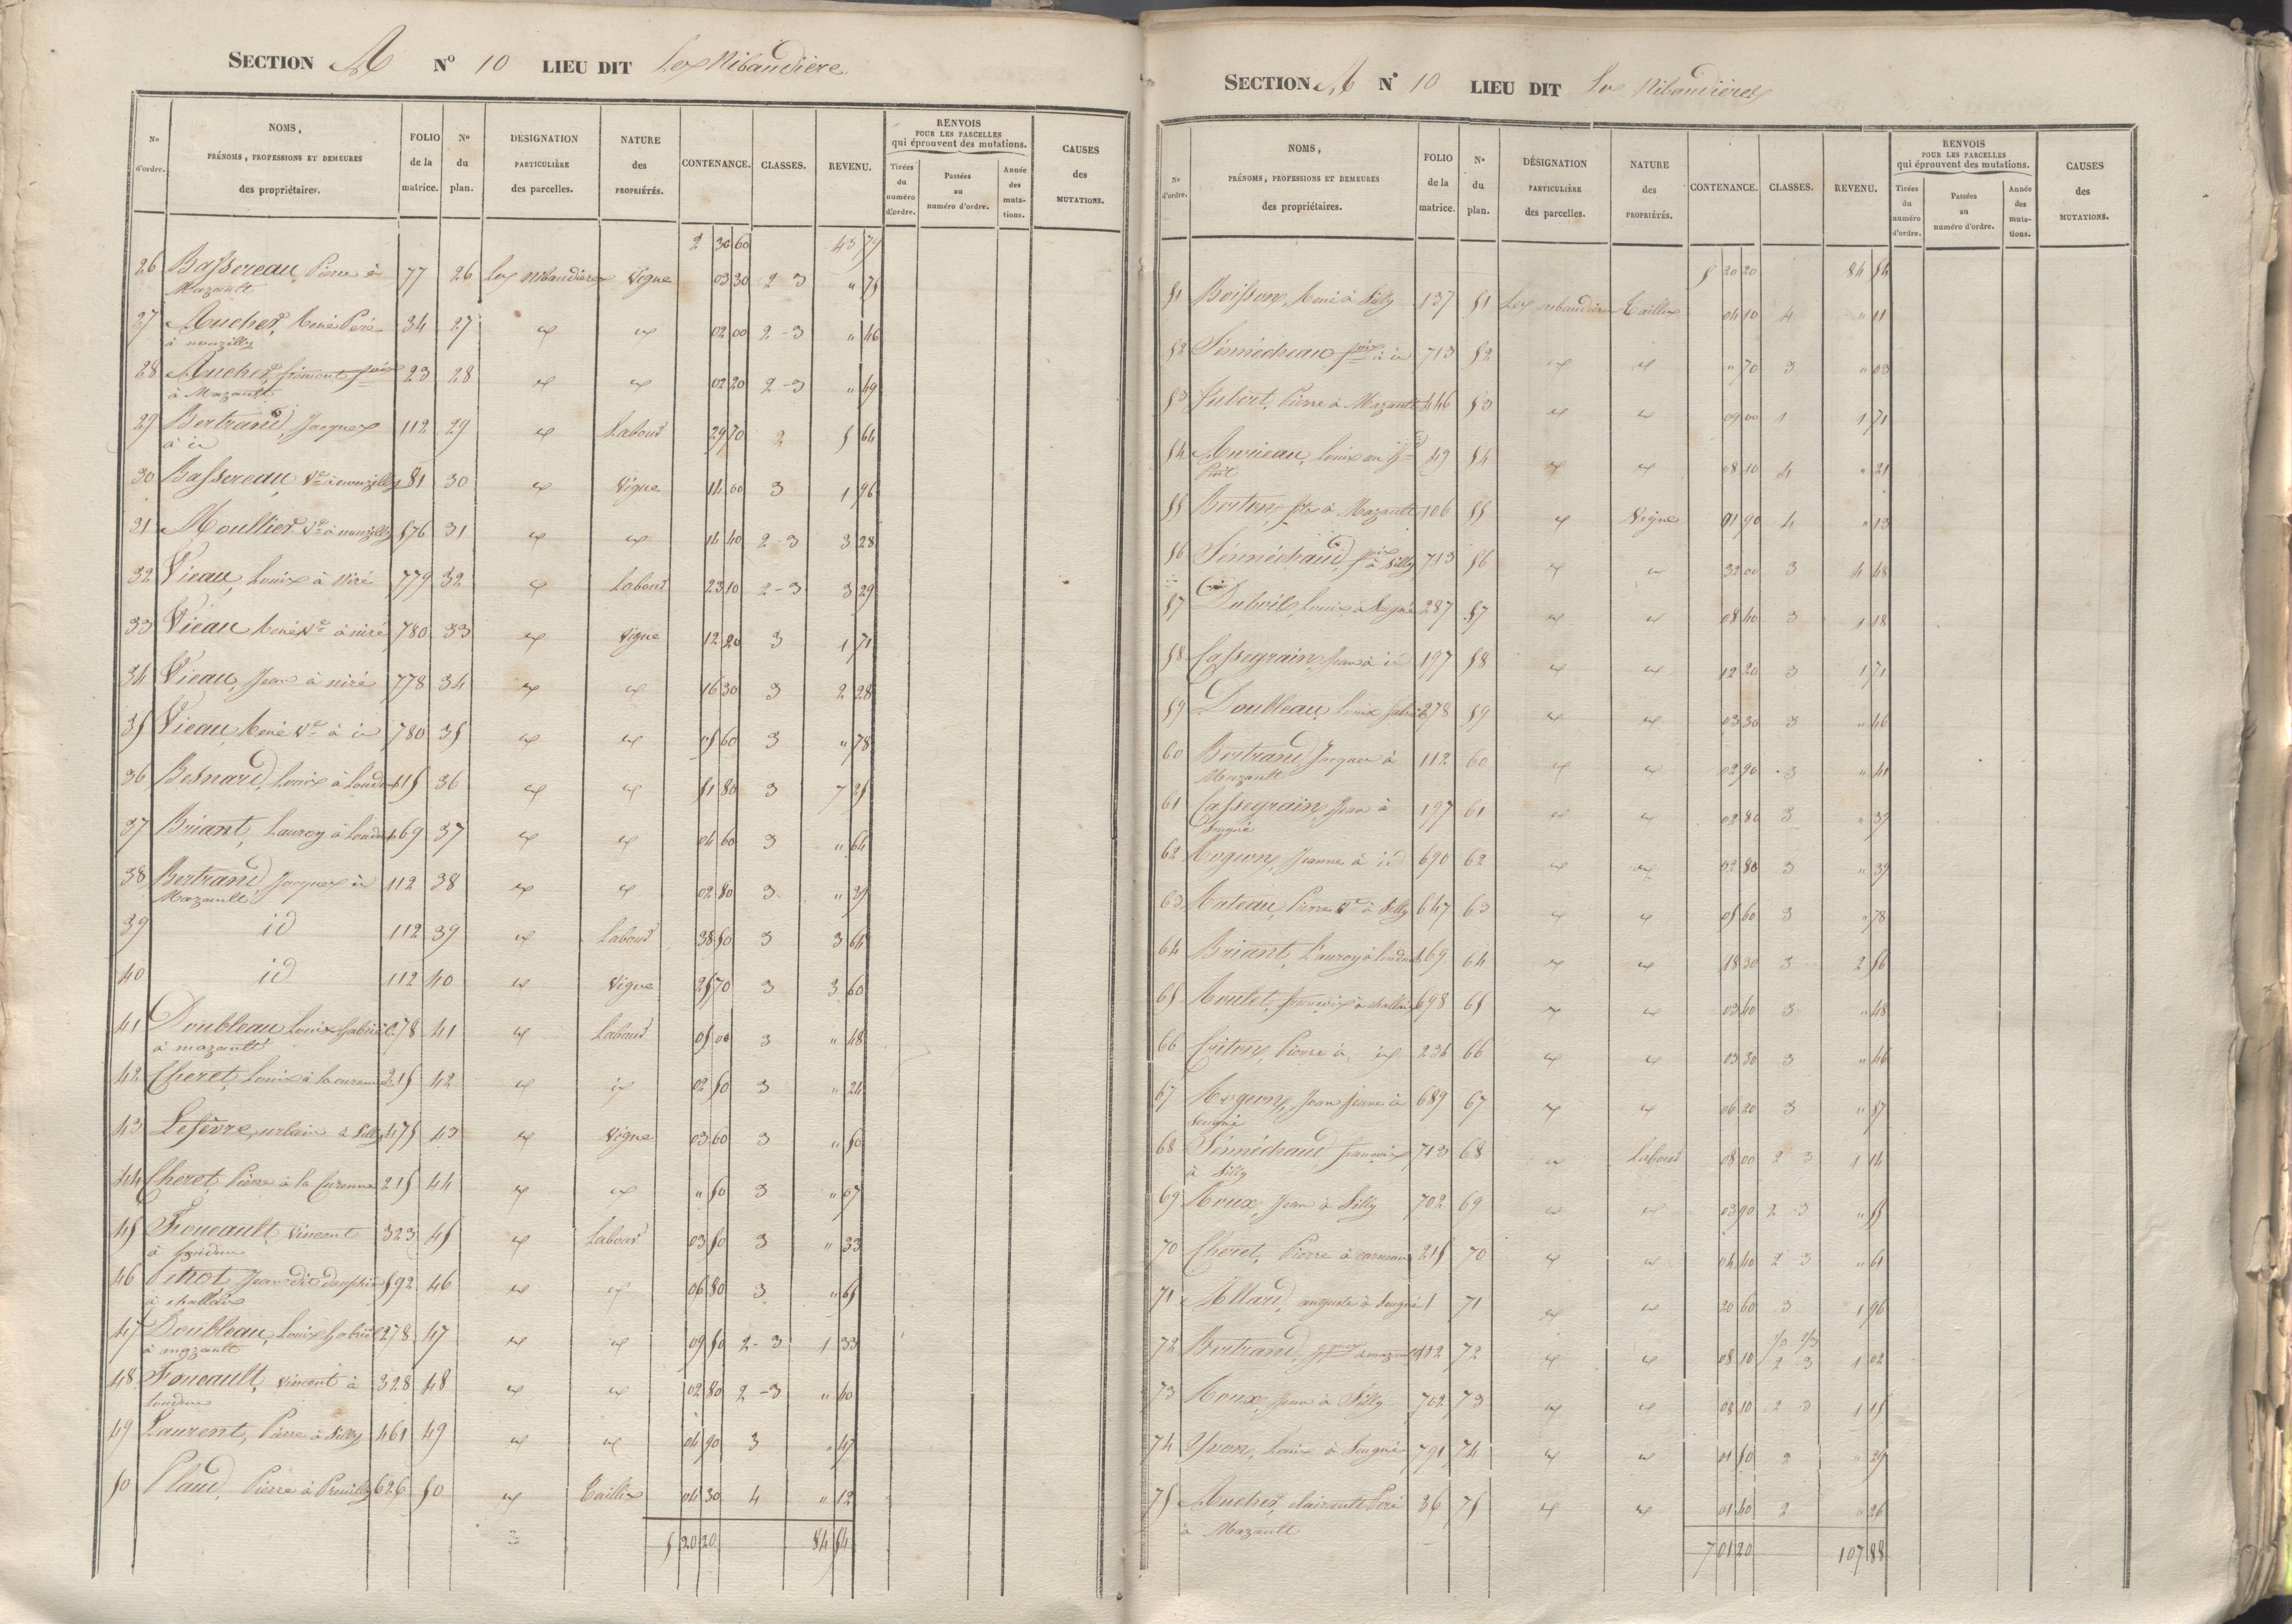 SECTION A N° 10 LIEU DIT Les Ribaudière
N° d'ordre. NOMS, PRÉNOMS, PROFESSIONS ET DEMEURES des propriétaires. FOLIO de la matrice. N° du plan. DÉSIGNATION PARTICULIÈRE des parcelles. NATURE des PROPRIÉTÉS. CONTENANCE. CLASSES. REVENU. RENVOIS POUR LES PARCELLES qui éprouvent des mutations. Tirées du numéro d'ordre. Passées au numéro d'ordre. Année des mutations. CAUSES des MUTATIONS.
2 30 60 45 79
26 Bassereau, Pierre à 77 26 Les Ribaudières Vigne 03 30 2 3 " 75
Mazault
27 Aucher, René Péré 34 27 id id 02 00 2-3 " 46
à nouzilly
28 Aucher, 23 28 id id 02 20 2-3 " 49
à Mazault
29 Bertrand, Jacques 112 29 id Labour 29 70 2 5 64
à id
30 Bassereau Ve à nouzilly 81 30 id Vigne 14 00 3 1 96
31 Moullier Ve à nouzilly 576 31 id id 14 40 2-3 3 28
32 Vieau, Louis à niré 779 32 id Labour 23 10 2-3 3 29
33 Vieau René Ve à niré 780 33 id Vigne 12 20 3 1 71
34 Vieau, Jean à niré 778 34 id id 16 30 3 2 28
35 Vieau René Ve à id 780 35 id id 05 60 3 " 78
36 Besnard, Louis à Loudun 115 36 id id 51 80 3 7 25
37 Briant, Lauroy à Loudun 169 37 id id 04 60 3 " 64
38 Bertrand, Jacques à 112 38 id id 02 80 3 " 39
Mazault
39 id 112 39 id Labour 38 50 3 3 66
40 id 112 40 id Vigne 25 70 3 3 60
41 Doubleau Louis Gabriel 278 41 id Labour 05 00 3 " 48
à mazault
42 Cheret, Louis à la curenne 215 42 id id 02 50 3 " 24
43 Lefèvre, urbain à Silly 475 43 id Vigne 03 60 3 " 50
44 Cheret, Pierre à la Curenne 215 44 id id " 50 3 " 07
45 Foucault, Vincent 323 45 id Labour 03 50 3 " 33
à Loudun
46 Petiot, Jean dit dauphin 592 46 id id 06 80 3 " 65
à challais
47 Doubleau, Louis Gabriel 278 47 id id 09 50 2-3 1 33
à mazault
48 Foucault, Vincent à 328 48 id id 02 80 2-3 " 40
Loudun
49 Laurent, Pierre à Silly 461 49 id id 04 90 3 " 47
50 Plaud, Pierre à Preuilly 626 50 id Taillis 04 30 4 " 12
5 20 20 84 54
SECTION A N° 10 LIEU DIT Les Ribaudières
N° d'ordre. NOMS, PRÉNOMS, PROFESSIONS ET DEMEURES des propriétaires. FOLIO de la matrice. N° du plan. DÉSIGNATION PARTICULIÈRE des parcelles. NATURE des PROPRIÉTÉS. CONTENANCE. CLASSES. REVENU. RENVOIS POUR LES PARCELLES qui éprouvent des mutations. Tirées du numéro d'ordre. Passées au numéro d'ordre. Année des mutations. CAUSES des MUTATIONS.
5 20 20 84 54
51 Boisson, René à Silly 137 51 Les ribaudières Taillis 04 10 4 " 11
52 Sennécheau fçois à id 713 52 id id " 70 3 " 03
53 Hubert, Pierre à Mazault 446 53 id id 09 00 1 1 71
54 Aurieau, Louis au 49 54 id id 08 10 4 " 21
55 Berton, à Mazault 106 55 id Vigne 01 90 4 " 13
56 Sennéchaud, fçois à Silly 713 56 id id 32 00 3 4 48
57 Dubreil, Louis à Seugné 287 57 id id 08 40 3 1 18
58 Cassegrain, Jean à id 197 58 id id 12 20 3 1 71
59 Doubleau, Louis Gabriel 278 59 id id 03 30 3 " 46
60 Bertrand, Jacques à 112 60 id id 02 90 3 " 41
Mazault
61 Cassegrain, Jean à 197 61 id id 02 80 3 " 39
Seugné
62 Rogeon, Jeanne à id 690 62 id id 02 80 3 " 39
63 Rateau, Pierre Ve à Silly 647 63 id id 05 60 3 " 78
64 Briant, Lauroy à Loudun 169 64 id id 18 30 3 2 56
65 Roulet, françois à challais 698 65 id id 03 40 3 " 48
66 Criton, Pierre à id 234 66 id id 03 30 3 " 46
67 Rogeon, Jean jeune à 689 67 id id 06 20 3 " 87
Seugné
68 Sennéchaud, françois 713 68 id Labour 08 00 2 3 1 14
à Silly
69 Roux, Jean à Silly 702 69 id id 03 90 2 3 " 55
70 Cheret, Pierre à 215 70 id id 04 40 2 3 " 61
71 Allard, auguste à Seugné 1 71 id id 20 60 3 1 96
72 Bertrand, Jques à mazault 112 72 id id 08 10 1/3 2/3 2 3 1 02
73 Roux, Jean à Silly 702 73 id id 08 10 2 3 1 15
74 Yvon, Louis à Seugné 791 74 id id 01 50 2 " 29
75 Aucher, clairault Péré 36 75 id id 01 40 2 " 26
à Mazault
7 01 20 107 88